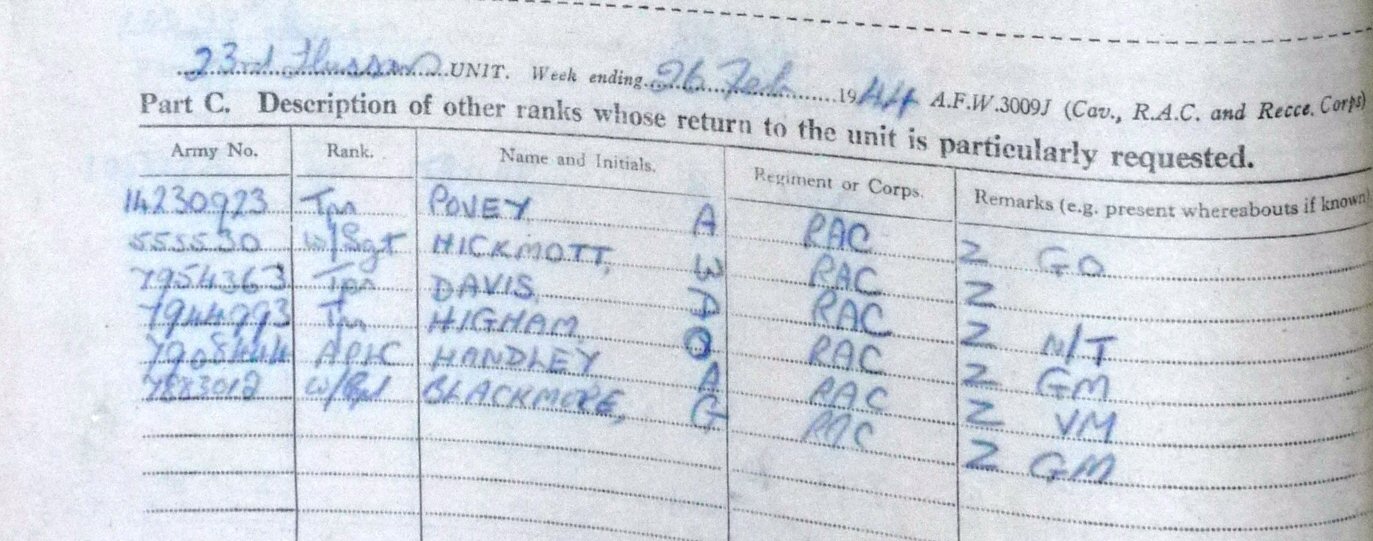 23rd Hussars UNIT. Week ending 26 Feb 1944 A.F.W.3009J (Cav., R.A.C. and Recce. Corps)
Part C. Description of other ranks whose return to the unit is particularly requested.
Army No. Rank. Name and Initials. Regiment or Corps. Remarks (e.g. present whereabouts if known)
14230923 Tpr POVEY A RAC Z GO
555530 W/Sgt HICKMOTT, W RAC Z
7954363 Tpr DAVIS, A RAC Z N/T
7944993 Tpr HIGHAM O RAC Z GM
7908444 AP/C HANDLEY A RAC Z VM
7883012 BLACKMORE, G RAC Z GM